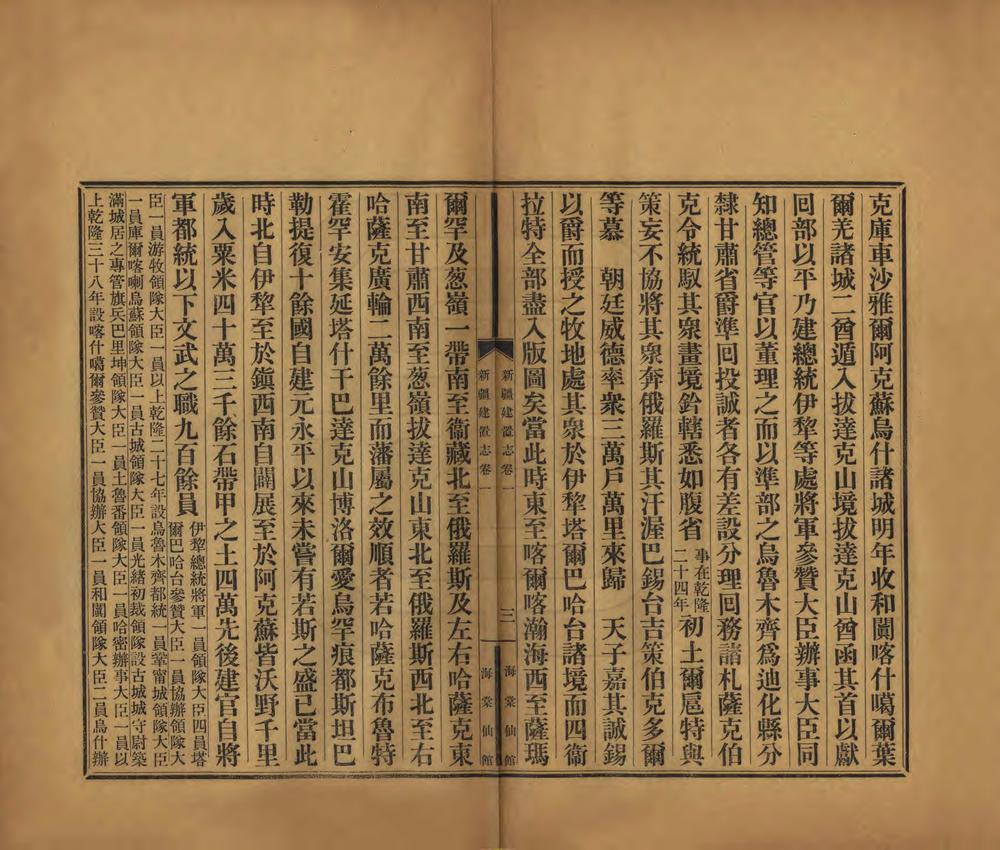 克庫車沙雅爾阿克蘇烏什諸城明年收和闐喀什噶爾葉
爾羌諸城二酋遁入拔達克山境拔達克山酋函其首以獻
回部以平乃建總統伊犂等處將軍參贊大臣辦事大臣同
知總管等官以董理之而以準部之烏魯木齊爲迪化縣分
隸甘肅省爵準回投誠者各有差設分理回務諸札薩克伯
克令統馭其衆畫境鈐轄悉如腹省事在乾隆二十四年初土爾扈特與
策妄不協將其衆奔俄羅斯其汗渥巴錫台吉策伯克多爾
等慕 朝廷威德率衆三萬戶萬里來歸 天子嘉其誠錫
以爵而授之牧地處其衆於伊犂塔爾巴哈台諸境而四衞
拉特全部盡入版圖矣當此時東至喀爾喀瀚海西至薩瑪
新疆建置志卷一
海棠仙館
新疆建置志卷一
三
海棠仙館
爾罕及葱嶺一帶南至衞藏北至俄羅斯及左右哈薩克東
南至甘肅西南至葱嶺拔達克山東北至俄羅斯西北至右
哈薩克廣輪二萬餘里而藩屬之效順者若哈薩克布魯特
霍罕安集延塔什干巴達克山博洛爾愛烏罕痕都斯坦巴
勒提復十餘國自建元永平以來未嘗有若斯之盛已當此
時北自伊犂至於鎭西南自闢展至於阿克蘇皆沃野千里
歲入粟米四十萬三千餘石帶甲之士四萬先後建官自將
軍都統以下文武之職九百餘員伊犂總統將軍一員領隊大臣四員塔
爾巴哈台參贊大臣一員協辦領隊大
臣一員游牧領隊大臣一員以上乾隆二十七年設烏魯木齊都統一員鞏甯城領隊大臣
一員庫爾喀喇烏蘇領隊大臣一員古城領隊大臣一員光緒初裁領隊設古城城守尉築
滿城居之專管旗兵巴里坤領隊大臣一員土魯番領隊大臣一員哈密辦事大臣一員以
上乾隆三十八年設喀什噶爾參贊大臣一員協辦大臣一員和闐領隊大臣二員烏什辦